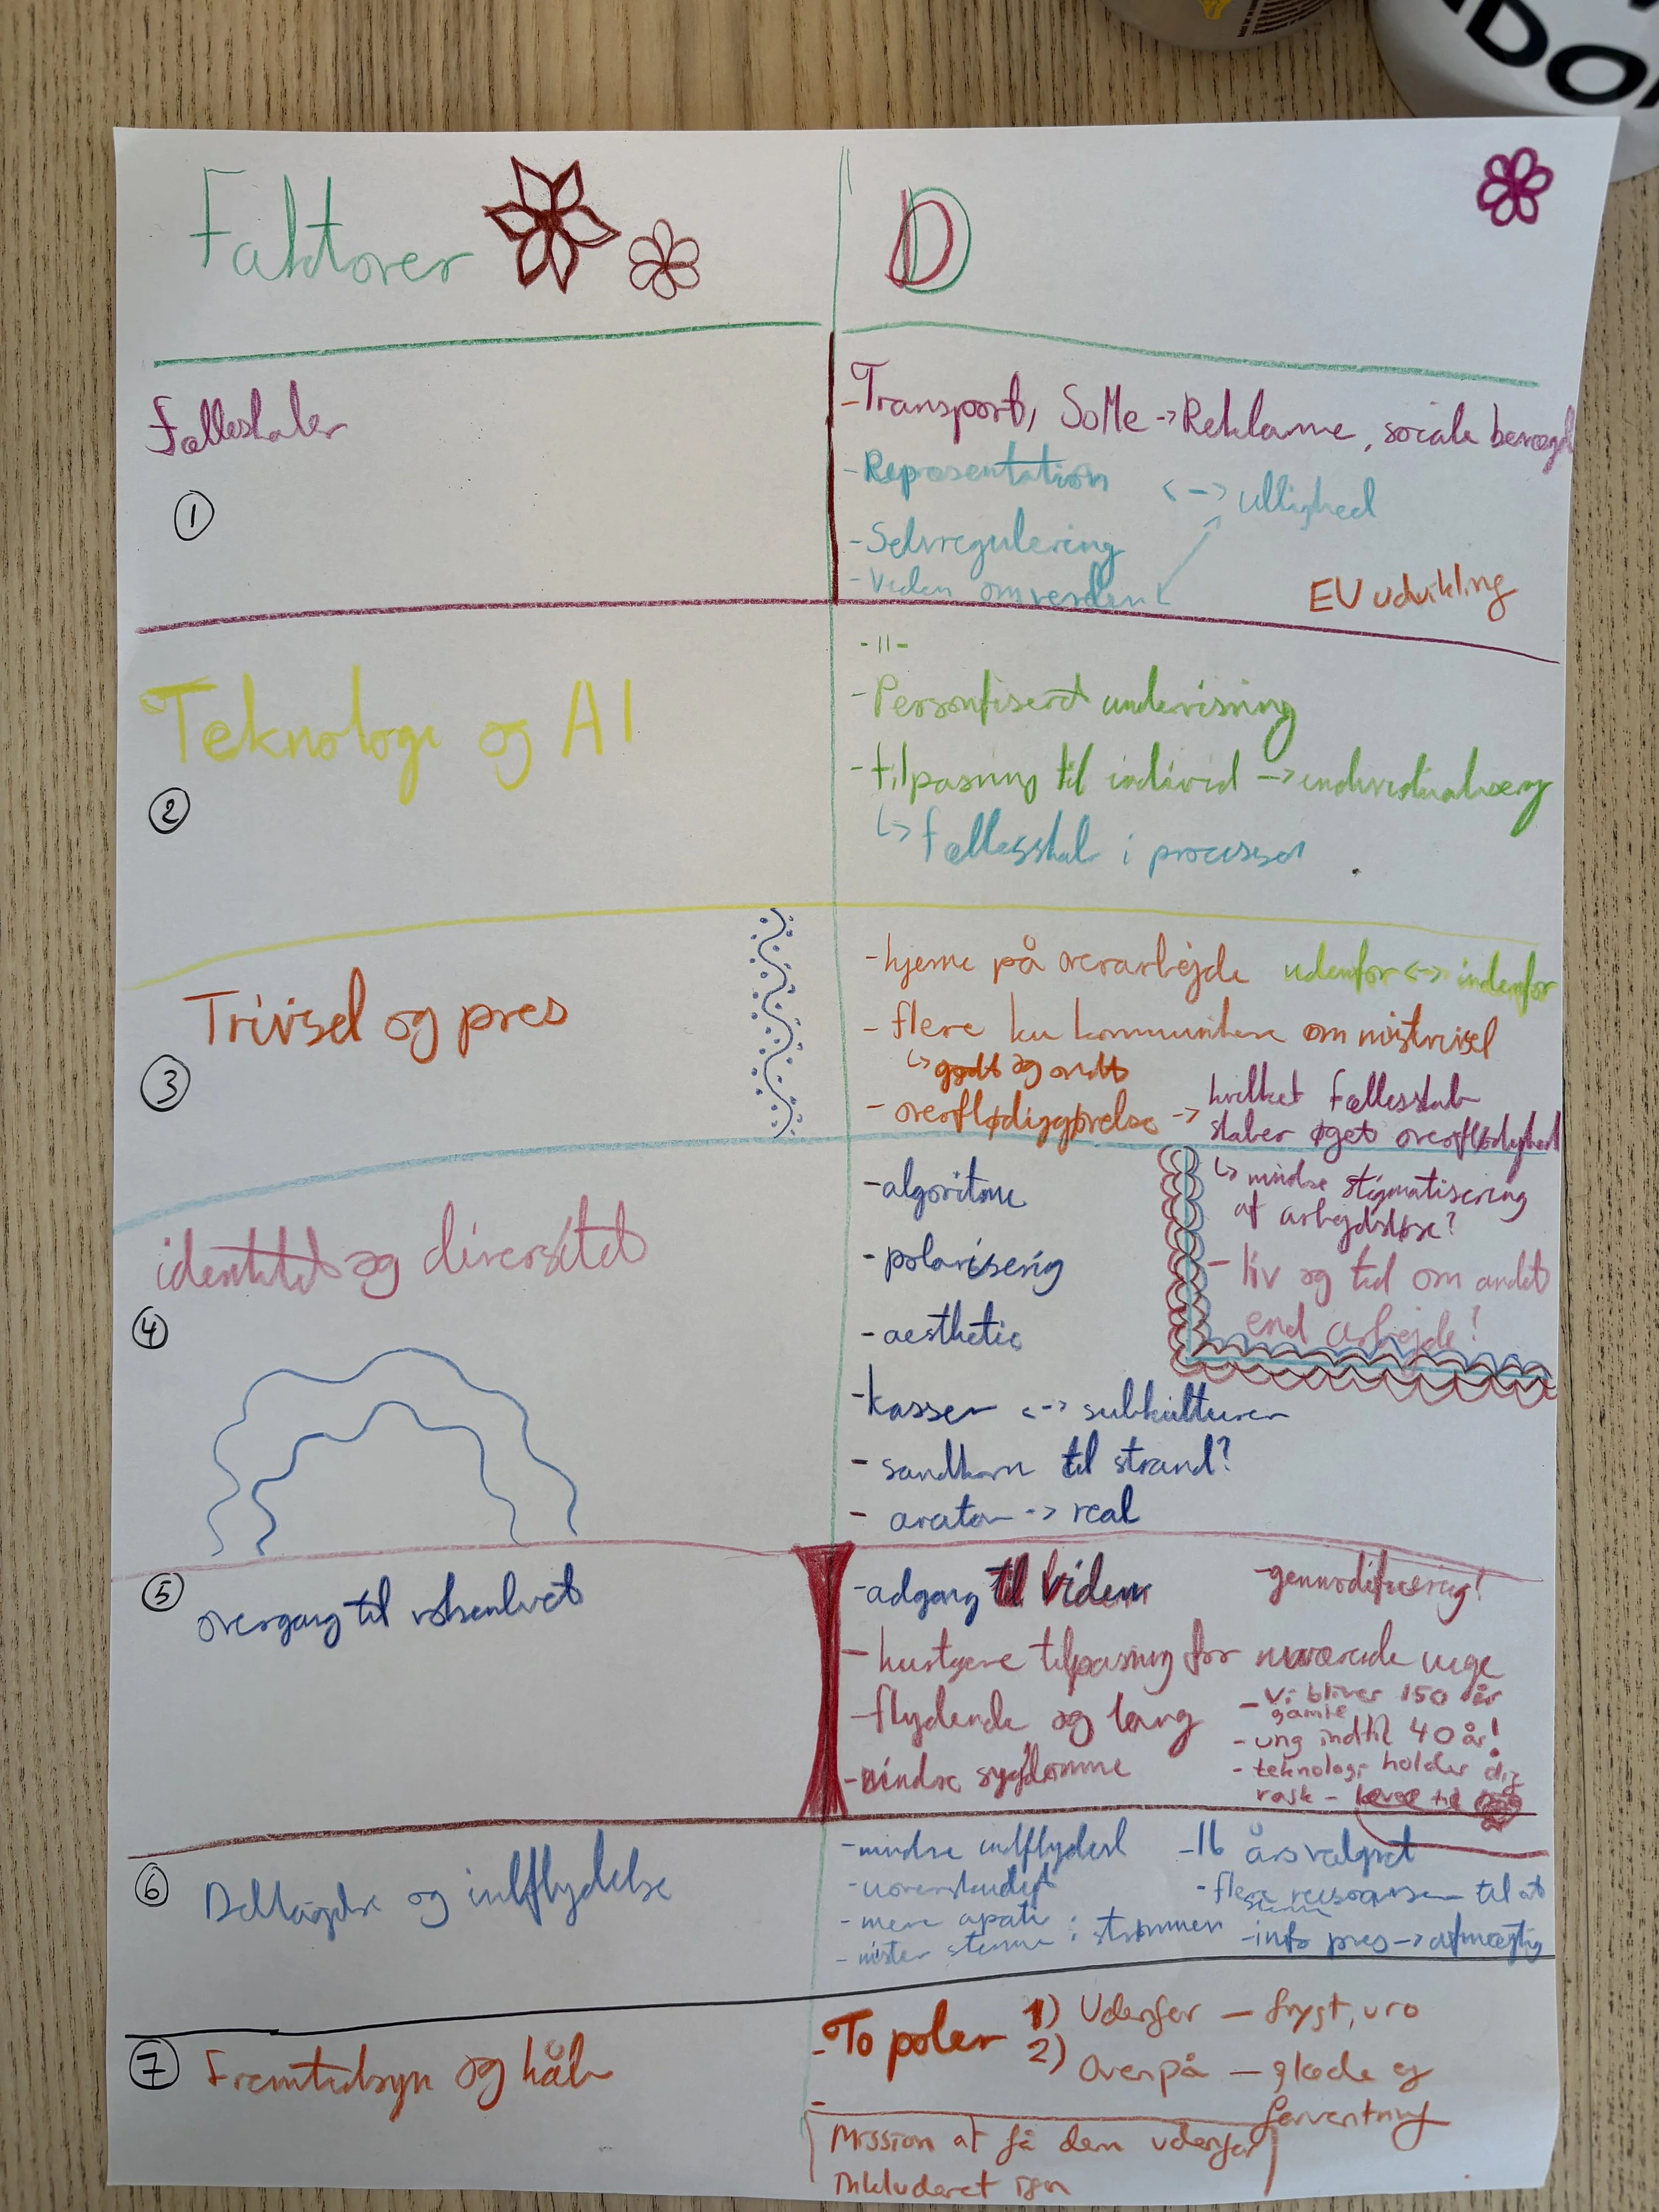 Faktorer
D
Fælleskaber
①
- Transport, SoMe -> Reklame, sociale bevægel
- Repræsentation <-> ullighed
- Selvregulering
- Viden om verden
EU udvikling
Teknologi og AI
②
- 11 -
- Personfisert undervisning
- tilpasning til individ -> individualisering
↳ fællesskab i processer
Trivsel og pres
③
- hjerne på overarbejde udenfor <-> indenfor
- flere ku kommunikere om mistrivsel
↳ godt og ondt
- overflødiggørelse -> hvilket fællesskab
skaber øget overflødighed
↳ mindre stigmatisering
af arbejdsløse?
- liv og tid om andet
end arbejde!
identitet og diversitet
④
- algoritme
- polarisering
- aesthetic
- kasser <-> subkulturer
- sandkorn til strand?
- avatar -> real
⑤
overgang til voksenlivet
- adgang til viden
- genmodificering!
- hurtigere tilpasning for nuværende unge
- flydende og lang
- mindre sygdomme
- Vi bliver 150 år
gamle
- ung indtil 40 år!
- teknologi holder dig
rask -
⑥
Deltagelse og indflydelse
- mindre indflydelse
- uoverskueligt
- mere apati
- mister stemme i strømmen
- 16 års valgret
- flere ressourcer til at
stemme
- info pres -> afmægtig
⑦
Fremtidsyn og håb
- To poler
1) Udenfor — frygt, uro
2) Ovenpå — glæde og
forventning
-
Mission at få dem udenfor
Inkluderet igen
DO